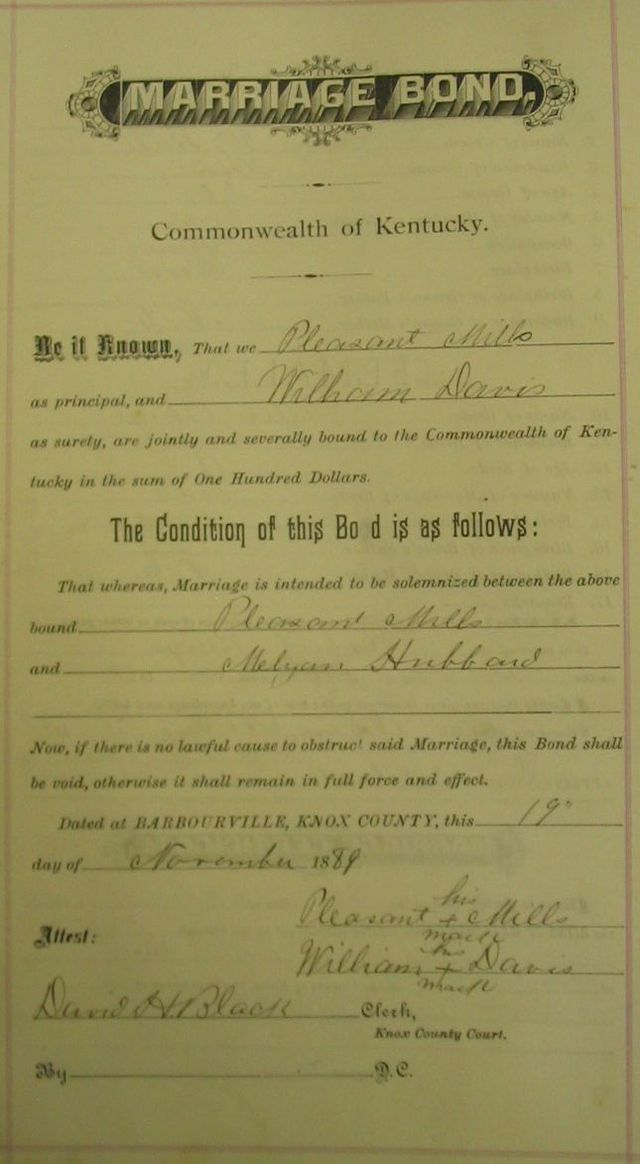 MARRIAGE BOND.
Commonwealth of Kentucky.
Be it Known, That we Pleasant Mills
as principal, and William Davis
as surety, are jointly and severally bound to the Commonwealth of Ken-
tucky in the sum of One Hundred Dollars.
The Condition of this Bo d is as follows:
That whereas, Marriage is intended to be solemnized between the above
bound Pleasant Mills
and Melyan Hubbard
Now, if there is no lawful cause to obstruct said Marriage, this Bond shall
be void, otherwise it shall remain in full force and effect.
Dated at BARBOURVILLE, KNOX COUNTY, this 19"
day of November 1889
his
Pleasant + Mills
mark
Attest:
his
William + Davis
mark
David H Black Clerk,
Knox County Court.
By D.C.